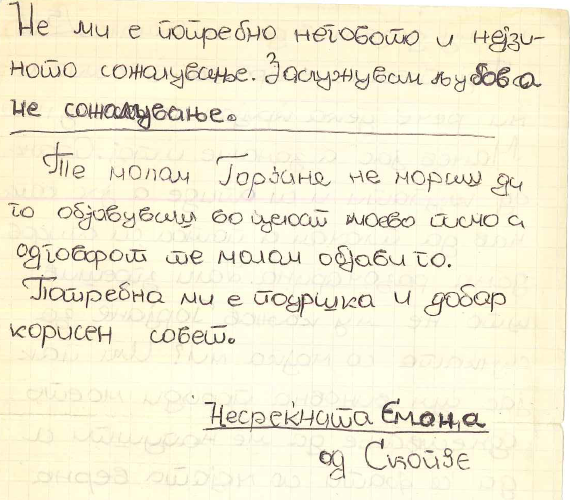 Не ми е потребно неговото и нејзи-
ното сожалување. Заслужувам љубов а
не сожалување.
Те молам Горѓине не мораш да
го објовуваш во целост моево писмо а
одговорот те молам објави го.
Потребна ми е поџршка и добар
корисен совет.
Несреќната Емања
од Скопје